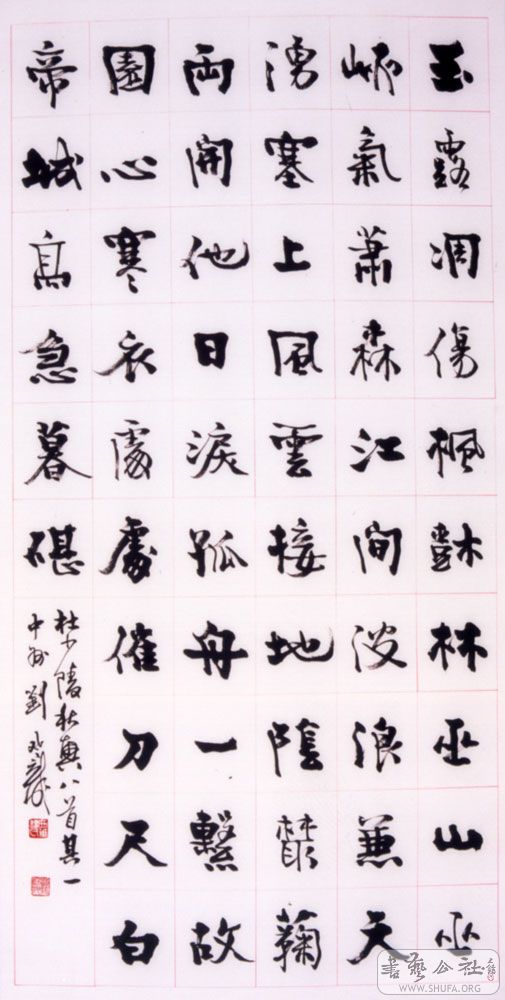 玉露凋傷楓樹林巫山巫
峽氣蕭森江間波浪兼天
湧塞上風雲接地陰叢蘜
両開他日淚孤舟一繫故
園心寒衣處處催刀尺白
帝城高急暮碪
杜少陵秋興八首其一
中州劉
書藝公社
WWW.SHUFA.ORG